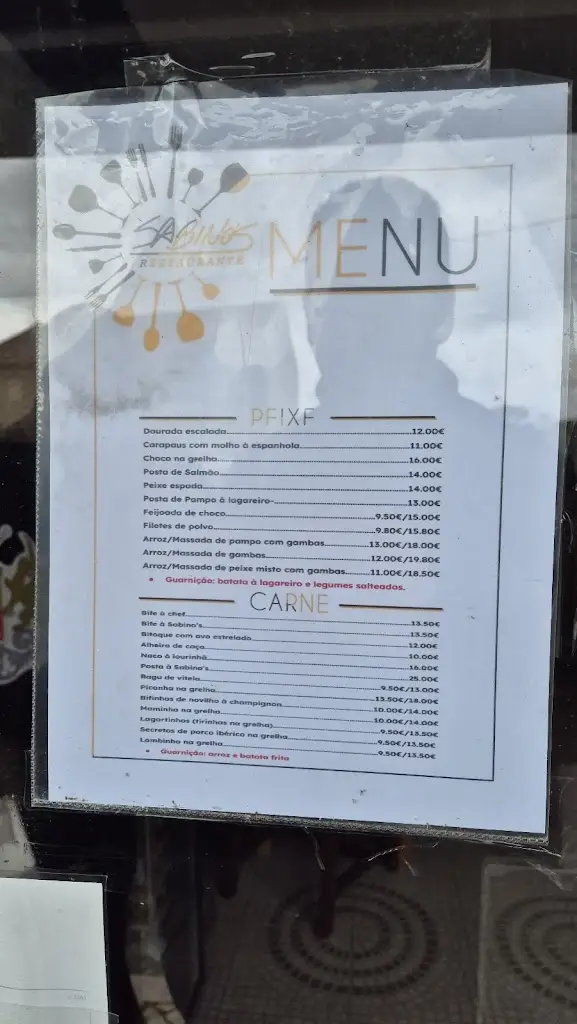 SABINO'S
RESTAURANTE
MENU
PEIXE
Dourada escalada 12.00€
Carapaus com molho à espanhola 11.00€
Choco na grelha 16.00€
Posta de Salmão 14.00€
Peixe espada 14.00€
Posta de Pampo à lagareiro- 13.00€
Feijoada de choco 9.50€/15.00€
Filetes de polvo 9.80€/15.80€
Arroz/Massada de pampo com gambas 13.00€/18.00€
Arroz/Massada de gambas 12.00€/19.80€
Arroz/Massada de peixe misto com gambas 11.00€/18.50€
• Guarnição: batata à lagareiro e legumes salteados.
CARNE
Bife à chef 13.50€
Bife à Sabino's 13.50€
Bitoque com ovo estrelado 12.00€
Alheira de caça 10.00€
Naco à lourinhã 16.00€
Posta à Sabino's 25.00€
Ragu de vitela 9.50€/13.00€
Picanha na grelha 13.50€/18.00€
Bifinhos de novilho à champignon 10.00€/14.00€
Maminha na grelha 10.00€/14.00€
Lagartinhos (tirinhas na grelha) 9.50€/13.50€
Secretos de porco ibérico na grelha 9.50€/13.50€
Lombinho na grelha 9.50€/13.50€
• Guarnição: arroz e batata frita